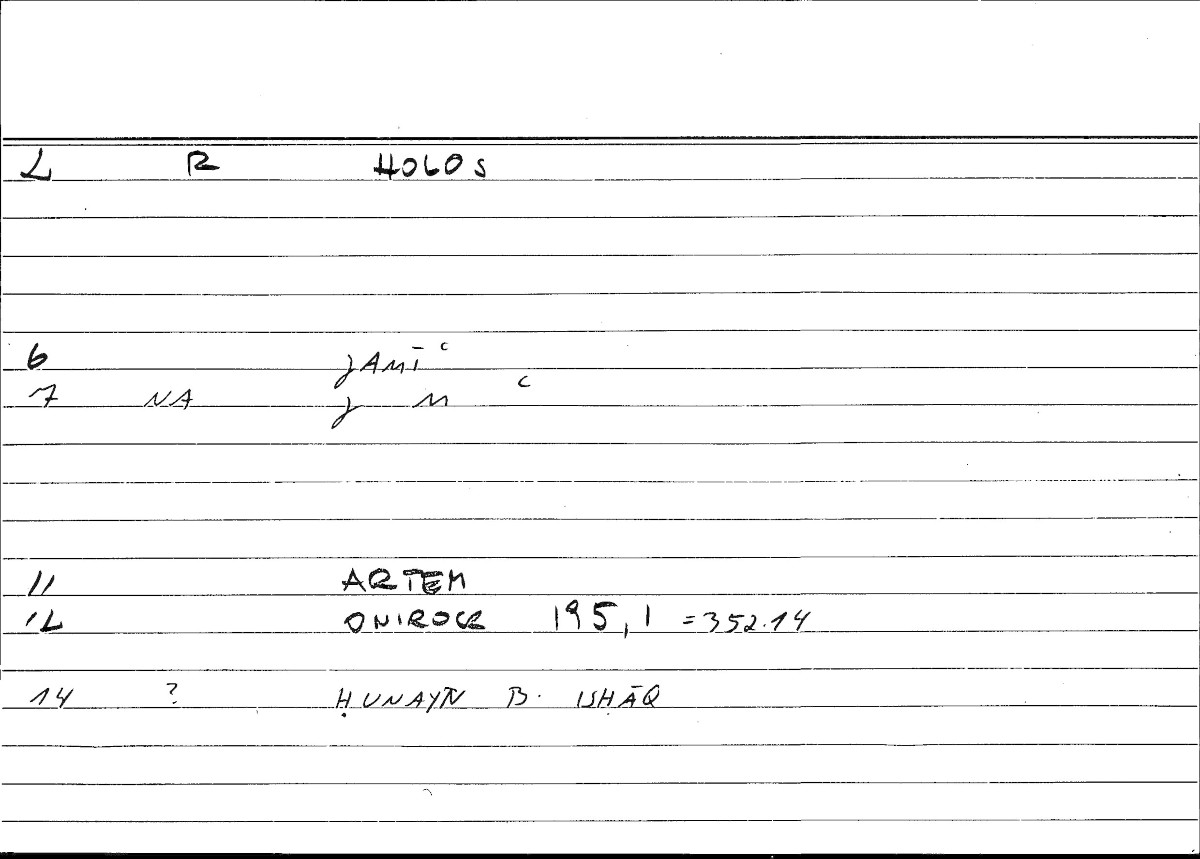 L R HOLOS
6 ǧAMĪʿ
7 NA ǧ M ʿ
11 ARTEM
12 ONIROCR 195,1 =352.14
14 ? ḤUNAYN B. ISḤĀQ